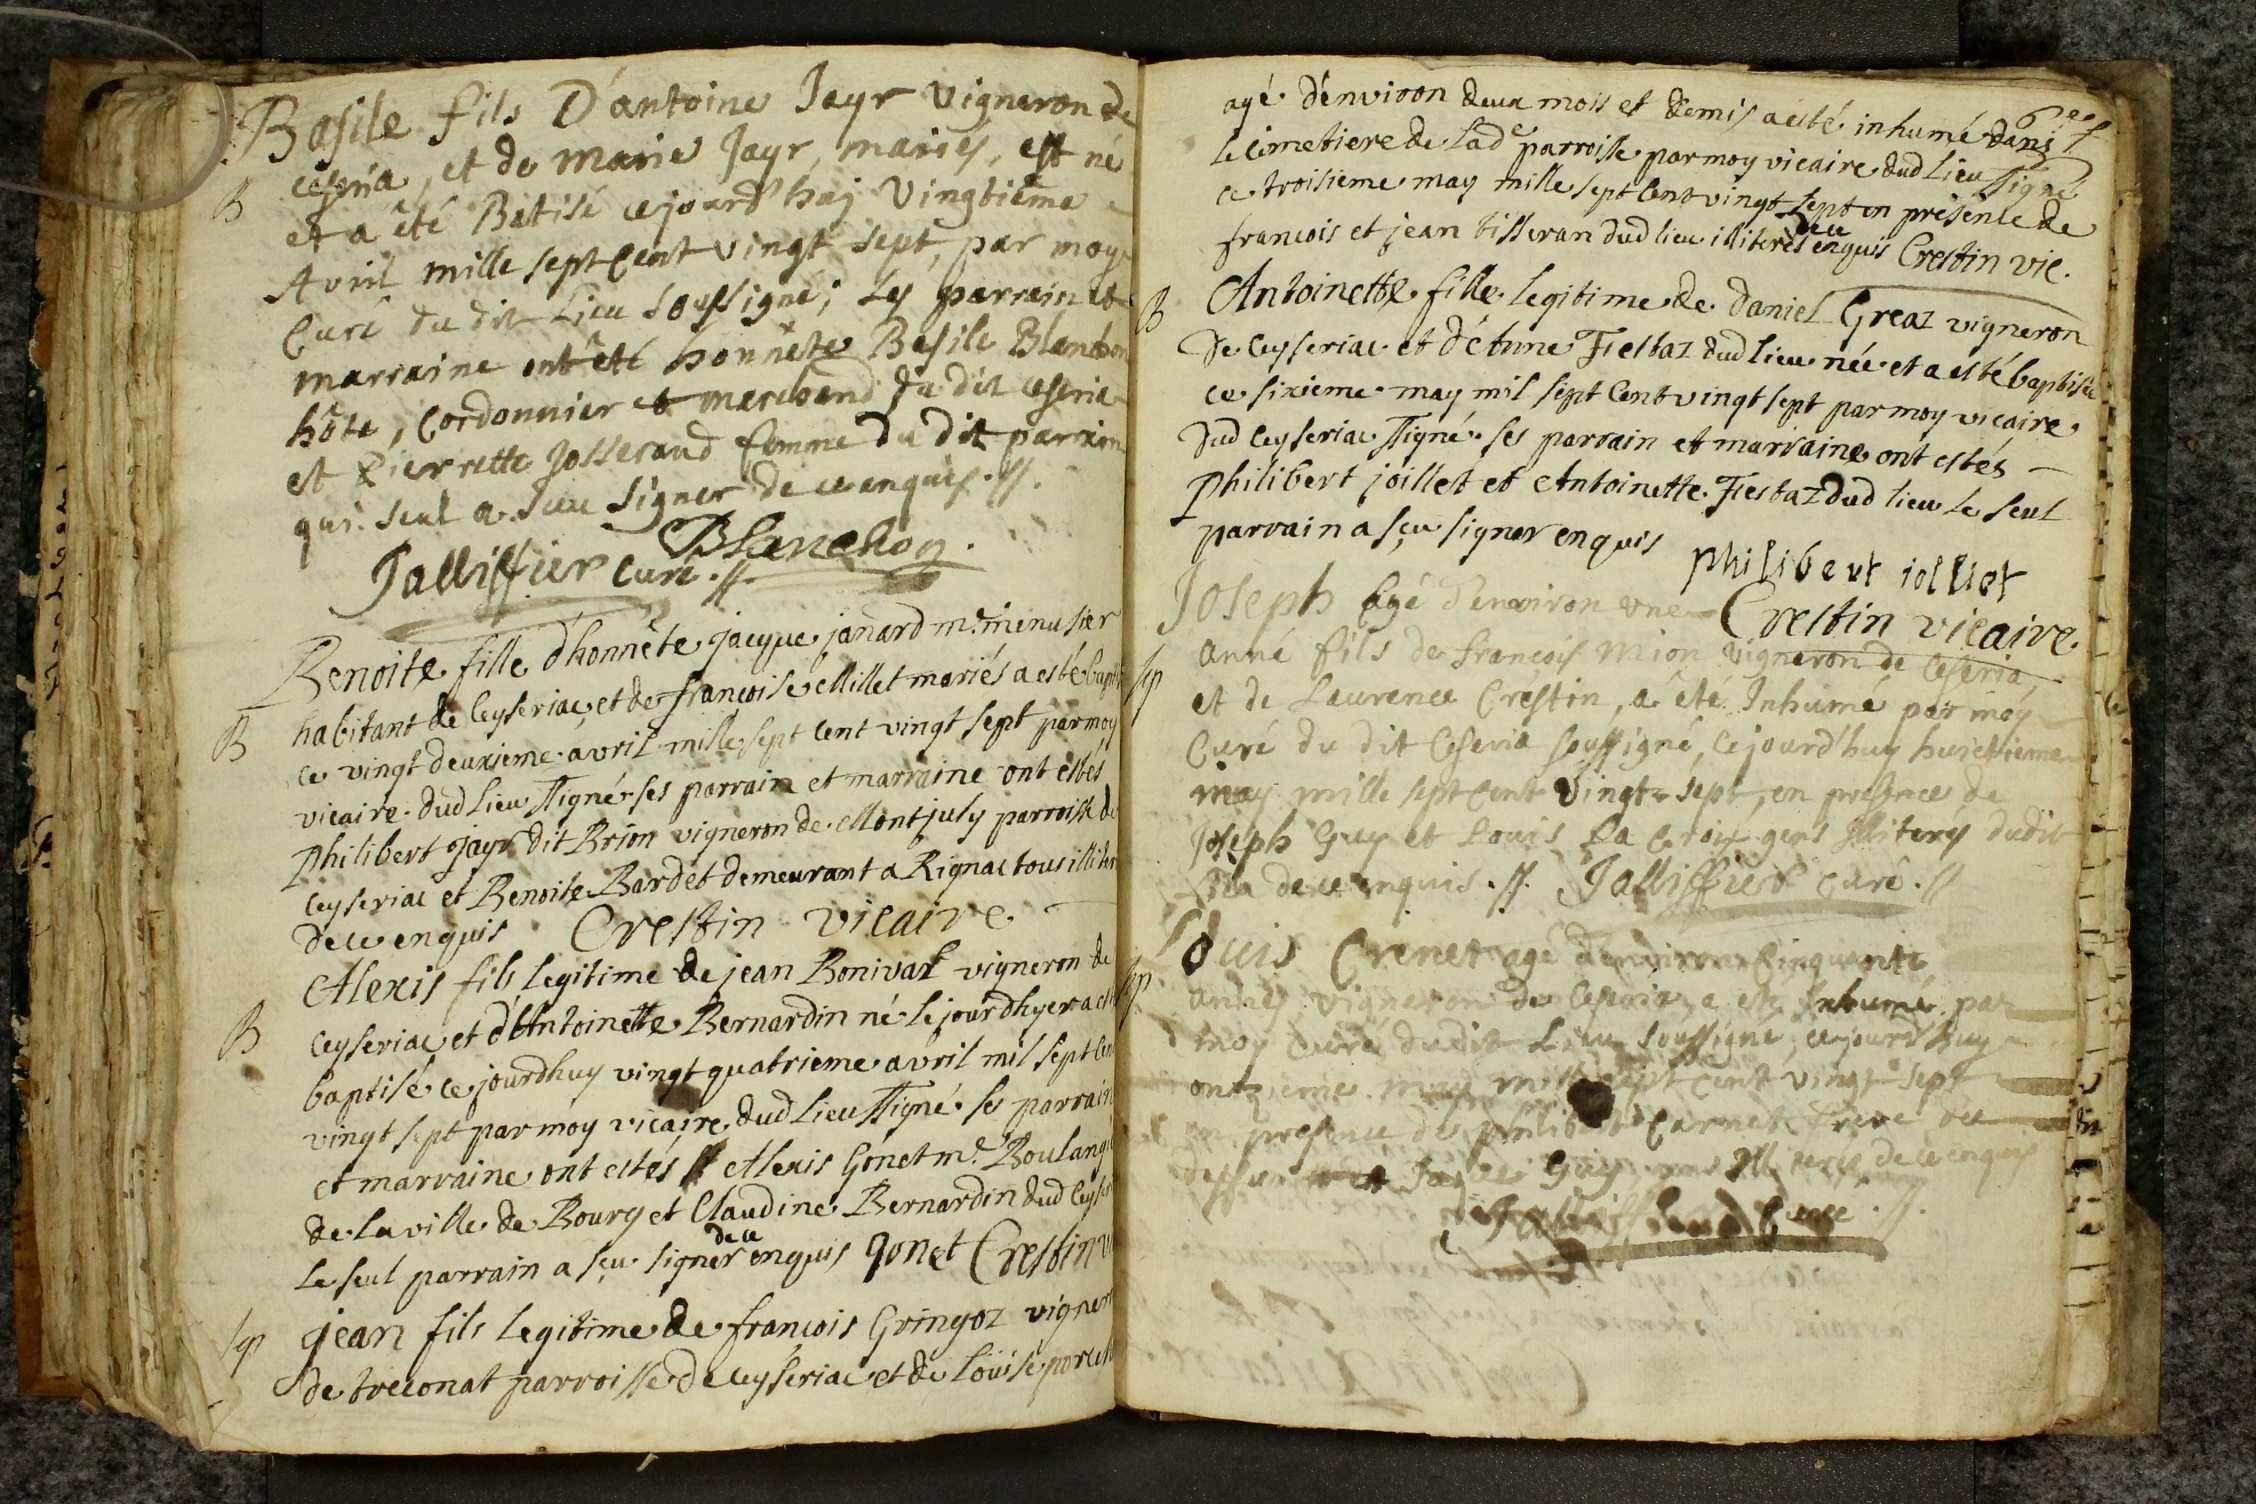 Basile fils D'antoine Jayr Vigneron de
B
ceseria, et de Marie Jayr, mariés, est né
et a êté Batisé cejourd'huj Vingtiême
Avril mille sept Cent Vingt sept, par moy
Curé du dit Lieu Soussigné; Les parrein et
marraine ont êté honnête Basile Blanchon
hôte, Cordonnier et marchand du dit Ceseria
et Pierrette Josserand femme du dit parrain
qui seul a sceu Signer de ce enquis.//.
Blanchon
Jalliffier Curé.//.
Benoite fille d'honnête jacque janard mre menusier
B
habitant de Ceyseriac, et de françoise Millet mariés a esté bapti
ce vingt deuxieme avril mille sept cent vingt sept par moy
vicaire dud lieu ssigné ses parrain et marraine ont estés
Philibert Jayr dit Brion vigneron de Montjuly parroisse de
Ceyseriac et Benoite Bardet demeurant a Rignac tous illiter
de ce enquis Crestin vicaire
Alexis fils legitime de jean Bonivat vigneron de
B
Ceyseriac et d'Antoinette Bernardin né le jourdhyer a esté
baptisé ce jourdhuy vingt quatrieme avril mil sept cen
vingt sept par moy vicaire dud lieu ssigné ses parrain
et marraine ont estés Alexis Gonet mre Boulange
de la ville de Bourg et Claudine Bernardin dud Ceyser
de ce
le seul parrain a sçu signer enquis gonet Crestin v
sp
jean fils legitime de françois Gringoz vigner
de treconat parroisse de Ceyseriac et de Loüise
agé d'environ deux mois et demis a esté inhumé dans
le cimetiere de lade parroisse par moy vicaire dud lieu ssigné
ce troisieme may mille sept cent vingt sept en presence de
de ce
francois et jean tisseran dud lieu illiterés enquis Crestin vic.
B
Antoinette fille legitime de daniel Greaz vigneron
de Ceyseriac et d'Etnne Fiestaz dud lieu née et a esté baptisée
ce sixieme may mil sept cent vingt sept par moy vicaire
dud Ceyseriac ssigné ses parrain et marraine ont estés
Philibert joillet et Antoinette Fiestaz dud lieu le seul
parrain a sçu signer enquis
philibert iolliet
Crestin vicaire
Joseph agé d'environ une
anné fils de françois Mion Vigneron de Ceseria,
sp
et de Laurence Crestin, a êté Inhumé par moy
Curé du dit Ceseria soussigné, cejourd'huy huictieme
may mille sept Cent Vingt-sept, en presence de
Joseph Guy et Louis La Croix gens Illiterés dudit
Lieu de ce enquis.//. Jalliffier Curé.//
Louis Crenet agé d'environ Cinquante
sp
années, vigneron de Ceseria, a eté Inhumé par
moy Curé dudit Lieu soussigné, cejourd'huy
onzieme may mille sept Cent vingt-sept
en presence de philibert frere du
dessus Guy Illiterés, de ce enquis
Curé.//.